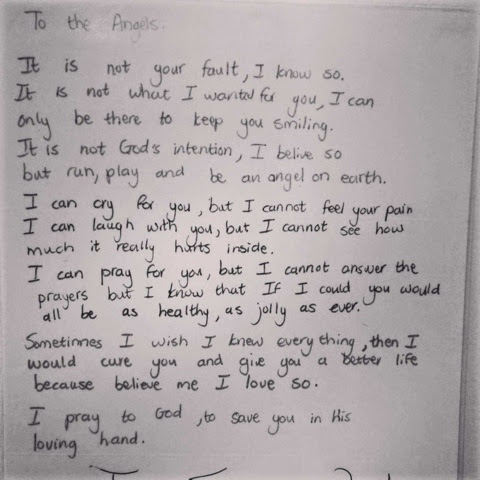 To the Angels.
It is not your fault, I know so.
It is not what I wanted for you, I can
only be there to keep you smiling.
It is not God's intention, I belive so
but run, play and be an angel on earth.
I can cry for you, but I cannot feel your pain
I can laugh with you, but I cannot see how
much it really hurts inside.
I can pray for you, but I cannot answer the
prayers but I know that If I could you would
all be as healthy, as jolly as ever.
Sometimes I wish I knew everything, then I
would cure you and give you a better life
because believe me I love so.
I pray to God, to save you in His
loving hand.